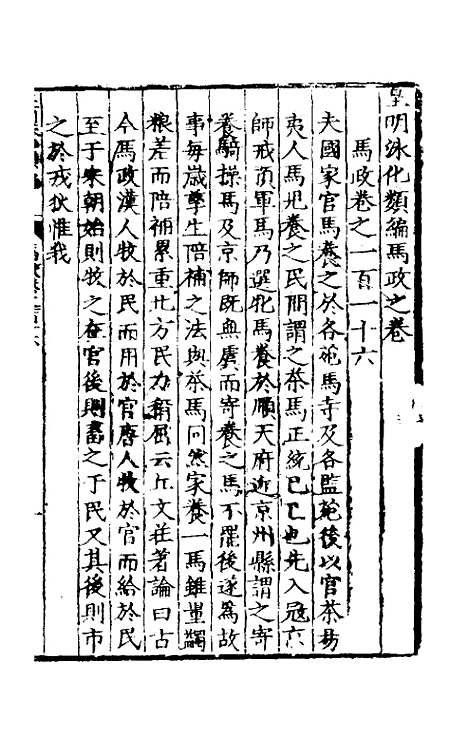 皇明泳化類編馬政之卷
馬政卷之一百一十六
夫國家官馬養之於各苑馬寺及各監苑後以官茶易
夷人馬悉養之民間謂之茶馬正統己巳也先入冦京
師戒嚴軍馬乃選牝馬養於順天府近京州縣謂之寄
養騎操馬及京師既無虞而寄養之馬不罷後遂爲故
事每歳孳生陪補之法與茶馬同然家養一馬雖量蠲
粮差而陪補累重北方民力窮屈云丘文莊著論曰古
今馬政漢人牧於民而用於官唐人牧於官而給於民
至于宋朝始則牧之在官後則畜之于民又其後則市
之於戎狄惟我